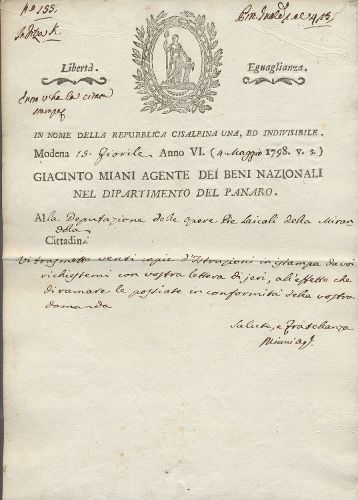 N.º 155.
Libertà. Eguaglianza.
IN NOME DELLA REPUBBLICA CISALPINA UNA, ED INDIVISIBILE.
Modena 15. Fiorile. Anno VI. (4. Maggio 1798. v. s.)
GIACINTO MIANI AGENTE DEI BENI NAZIONALI
NEL DIPARTIMENTO DEL PANARO.
Alla Deputazione delle opere Pie Laicali della Miran
dola
Cittadini
Vi trasmetto venti copie d'Istruzioni in istampa da voi
richiestemi con vostra lettera di jeri, all'effetto che
diramare le possiate in conformità della vostra
domanda
Salute, e Fratellanza
Miani ag.